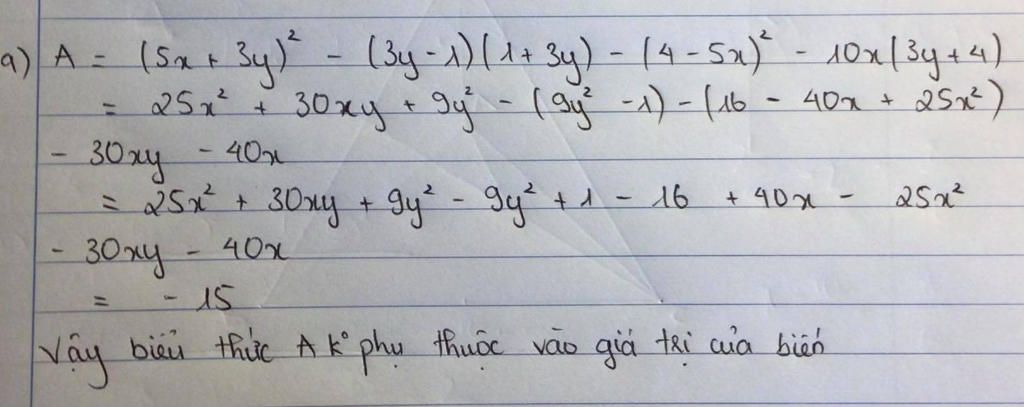 a) A = (5x + 3y)² - (3y - 1)(1 + 3y) - (4 - 5x)² - 10x(3y + 4)
= 25x² + 30xy + 9y² - (9y² - 1) - (16 - 40x + 25x²)
- 30xy - 40x
= 25x² + 30xy + 9y² - 9y² + 1 - 16 + 40x - 25x²
- 30xy - 40x
= - 15
Vậy biểu thức A k° phụ thuộc vào giá trị của biến